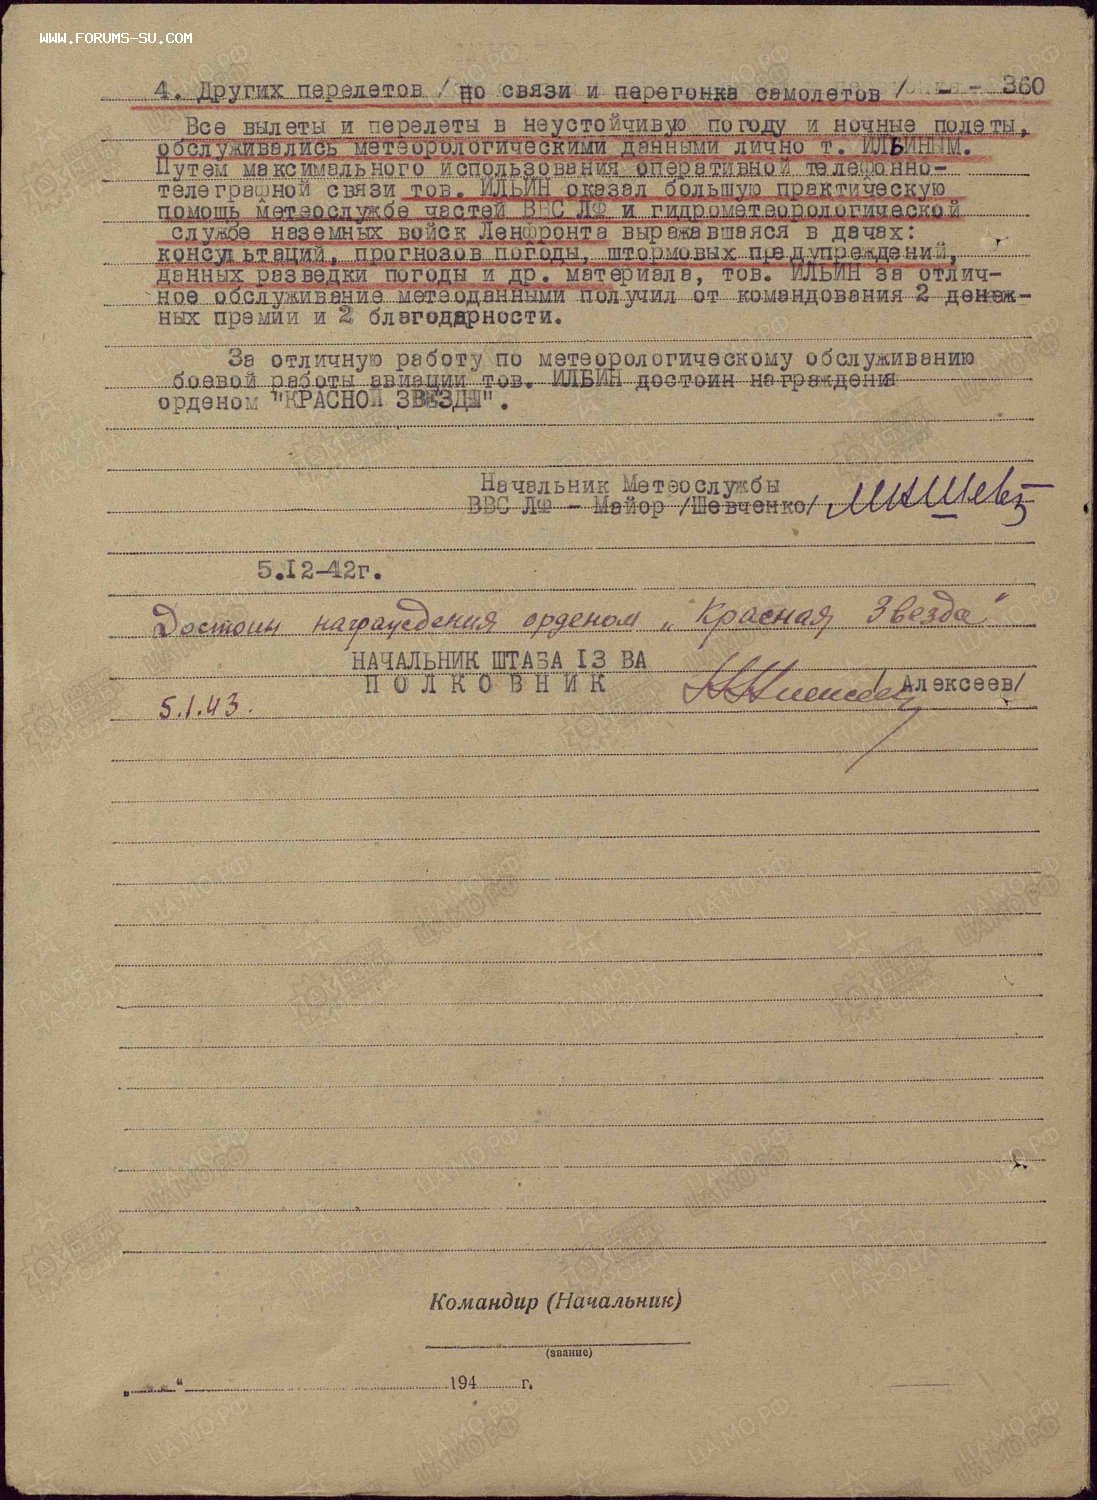 WWW.FORUMS-SU.COM
4. Других перелетов /по связи и перегонка самолетов/ - - 360
Все вылеты и перелеты в неустойчивую погоду и ночные полеты,
обслуживались метеорологическими данными лично т. ИЛЬИНЫМ.
Путем максимального использования оперативной телефонно-
телеграфной связи тов. ИЛЬИН оказал большую практическую
помощь метеослужбе частей ВВС ЛФ и гидрометеорологической
службе наземных войск Ленфронта выражавшаяся в дачах:
консультаций, прогнозов погоды, штормовых предупреждений,
данных разведки погоды и др. материала, тов. ИЛЬИН за отлич-
ное обслуживание метеоданными получил от командования 2 денеж-
ных премии и 2 благодарности.
За отличную работу по метеорологическому обслуживанию
боевой работы авиации тов. ИЛЬИН достоин награждения
орденом "КРАСНОЙ ЗВЕЗДЫ".
Начальник Метеослужбы
ВВС ЛФ - Майор /Шевченко/
5.12-42г.
Достоин награждения орденом „Красная Звезда".
НАЧАЛЬНИК ШТАБА 13 ВА
ПОЛКОВНИК /Алексеев/
5.1.43.
Командир (Начальник)
(звание)
„ “ 194 г.
ПАМЯТЬ НАРОДА
ЦАМО.РФ